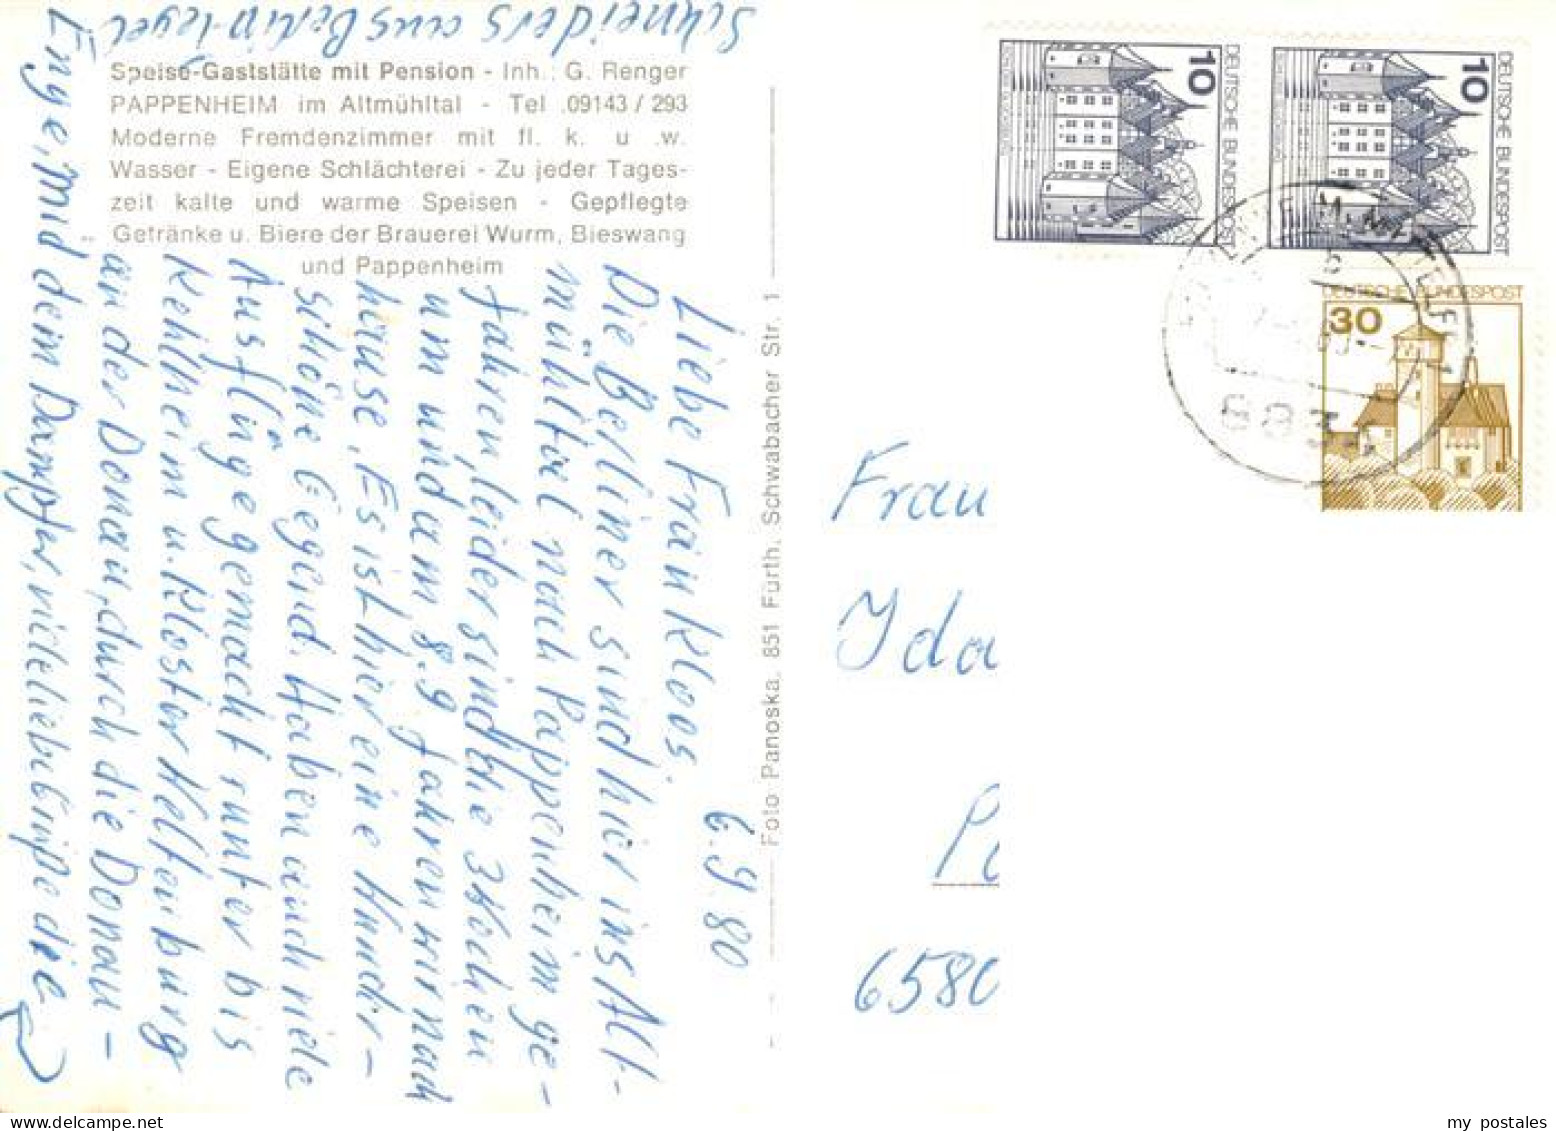 Speise-Gaststätte mit Pension - Inh.: G. Renger
PAPPENHEIM im Altmühltal - Tel .09143 / 293
Moderne Fremdenzimmer mit fl. k. u .w.
Wasser - Eigene Schlächterei - Zu jeder Tages-
zeit kalte und warme Speisen - Gepflegte
Getränke u. Biere der Brauerei Wurm, Bieswang
und Pappenheim
6.9.80
Liebe Frau Kloos.
Die Berliner sind hier ins Alt-
mühltal nach Pappenheim ge-
fahren, leider sind die 3 Wochen
um und am 8.9 fahren wir nach
hause. Es ist hier eine Hunder-
schöne Gegend. Haben auch viele
Ausflüge gemacht runter bis
Kehlheim u. Kloster Weltenburg
an der Donau, durch die Donau-
Enge, mid dem Dampfer, viele liebe Grüße die
Schneiders aus Berlin-Tegel
Foto Panoska, 851 Fürth, Schwabacher Str. 1
DEUTSCHE BUNDESPOST
10
DEUTSCHE BUNDESPOST
10
DEUTSCHE BUNDESPOST
30
883
Frau
Ida
P
6580
my postales